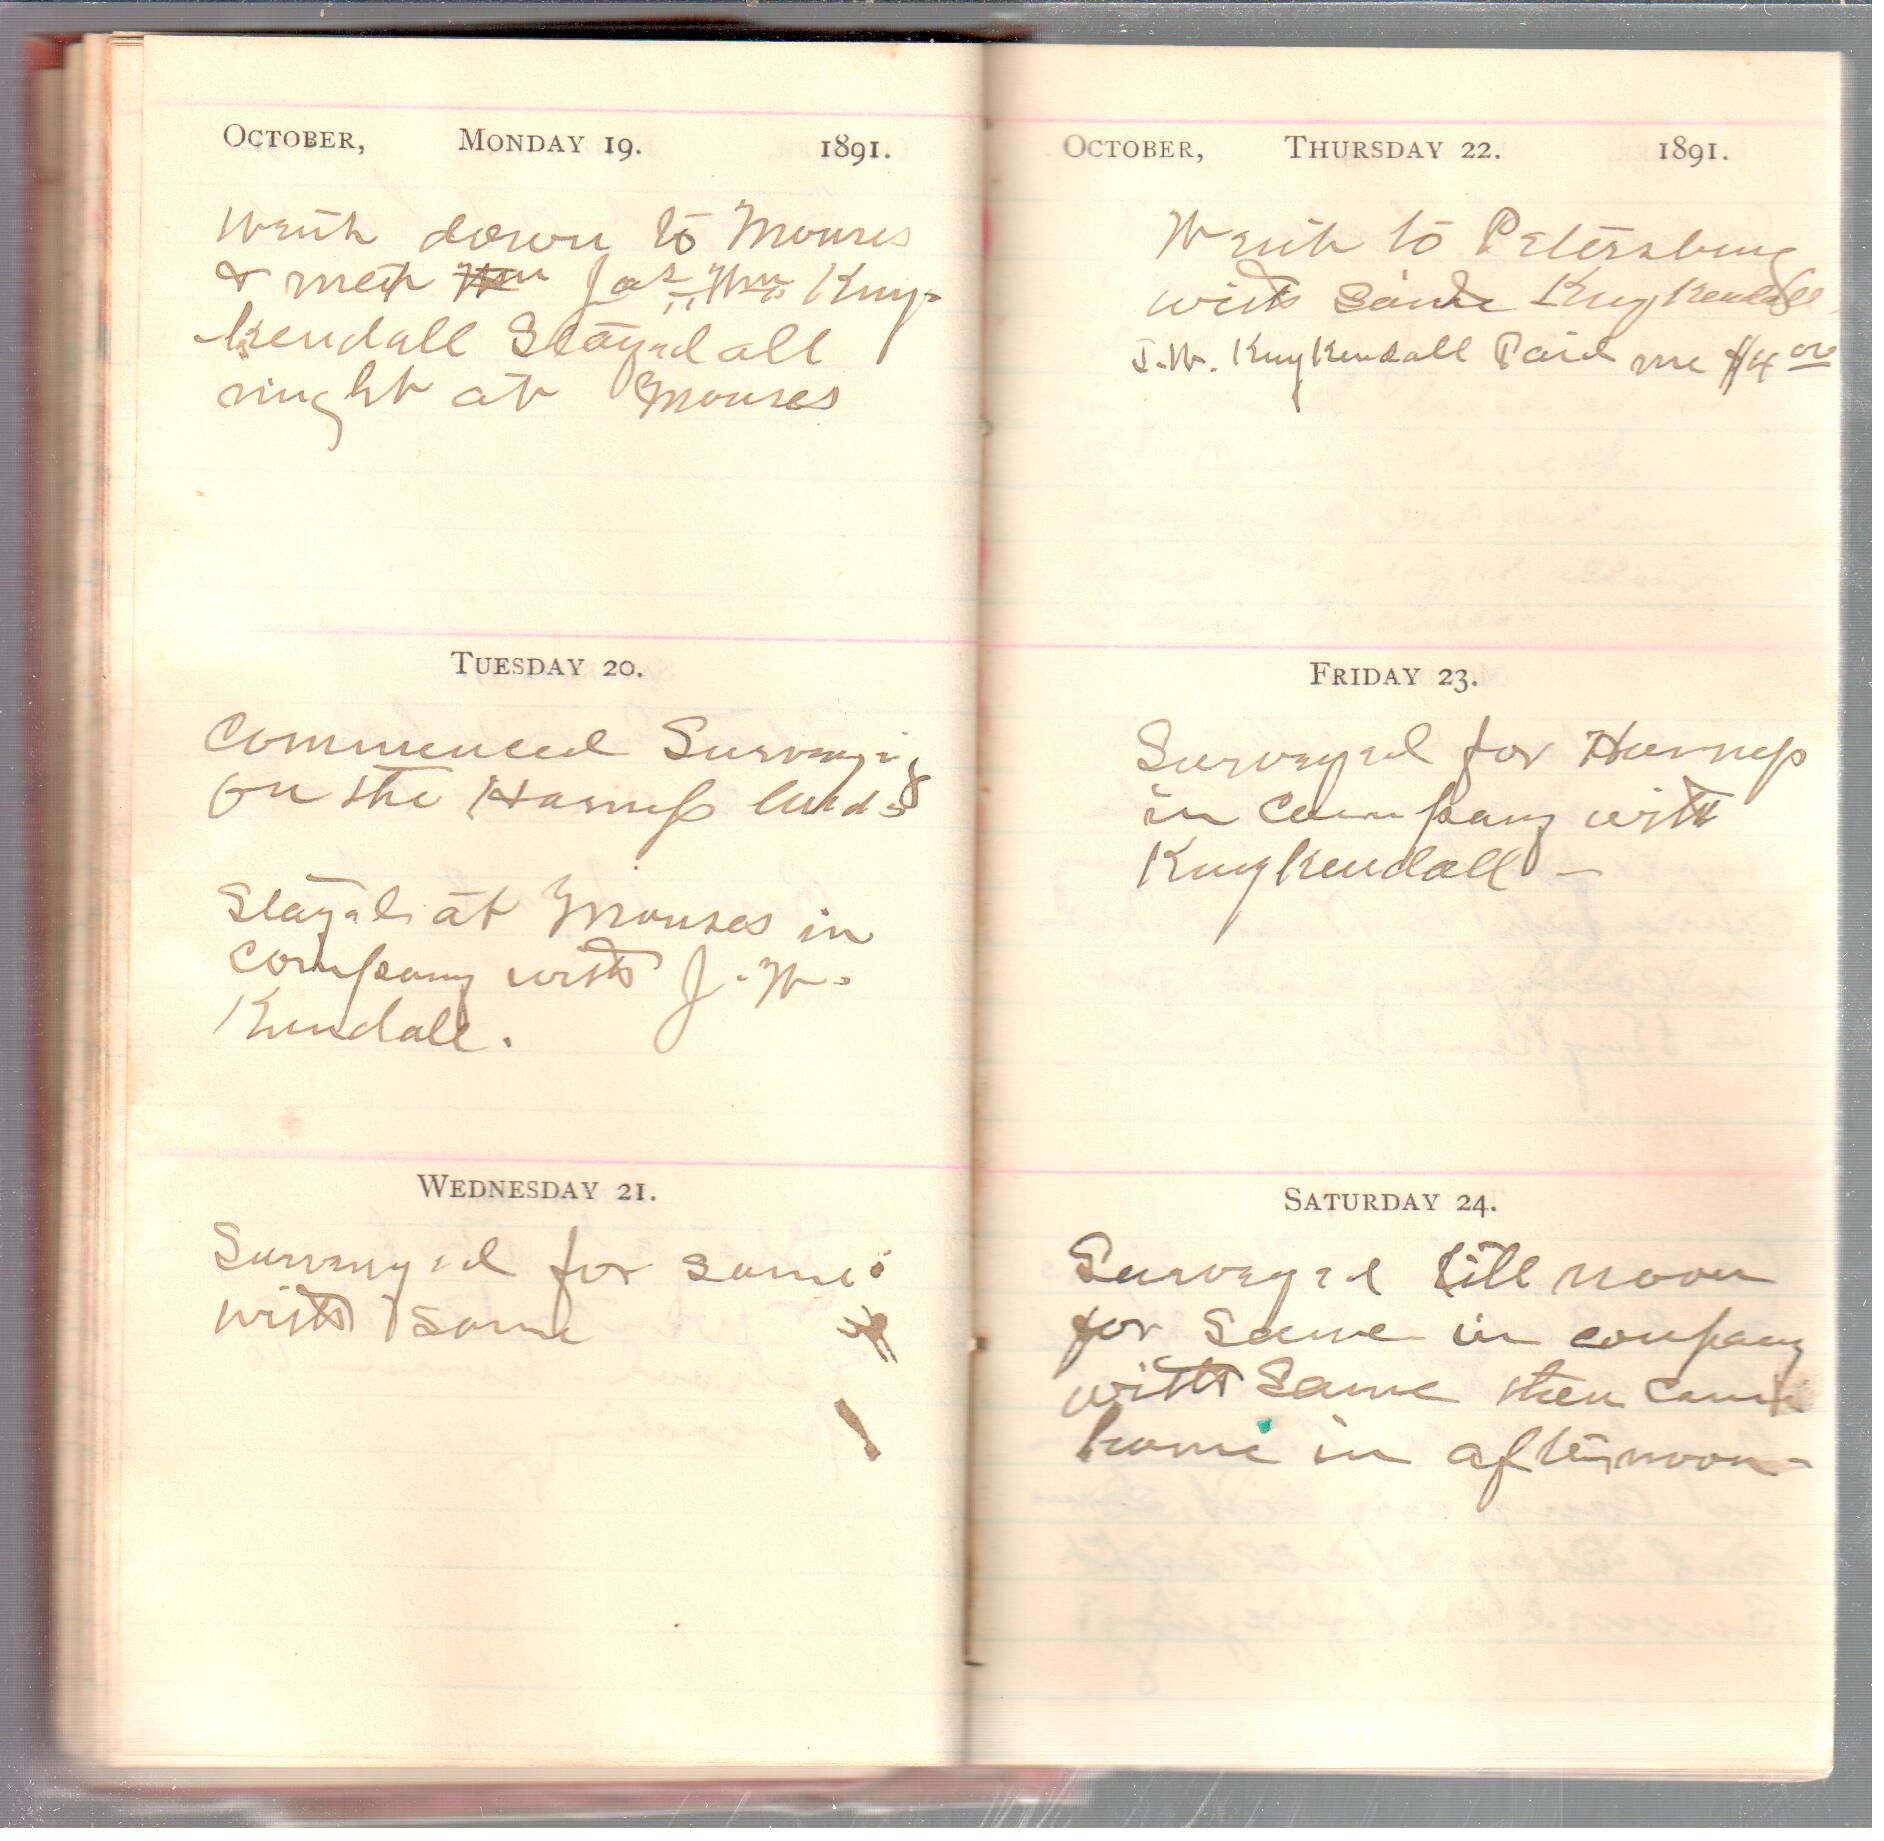 OCTOBER, MONDAY 19. 1891.
Went down to Mouses
& met Jas. Wm. Kuy-
kendall Stayed all
night at Mouses
TUESDAY 20.
Commenced Surveying
on the Harness lands
Stayed at Mouses in
company with J. W.
Kendall.
WEDNESDAY 21.
Surveyed for same
with same
OCTOBER, THURSDAY 22. 1891.
Went to Petersburg
with same KuyKendall
J.W. KuyKendall Paid me $4 00
FRIDAY 23.
Surveyed for Harness
in company with
KuyKendall –
SATURDAY 24.
Surveyed till noon
for Same in company
with Same then came
home in afternoon-